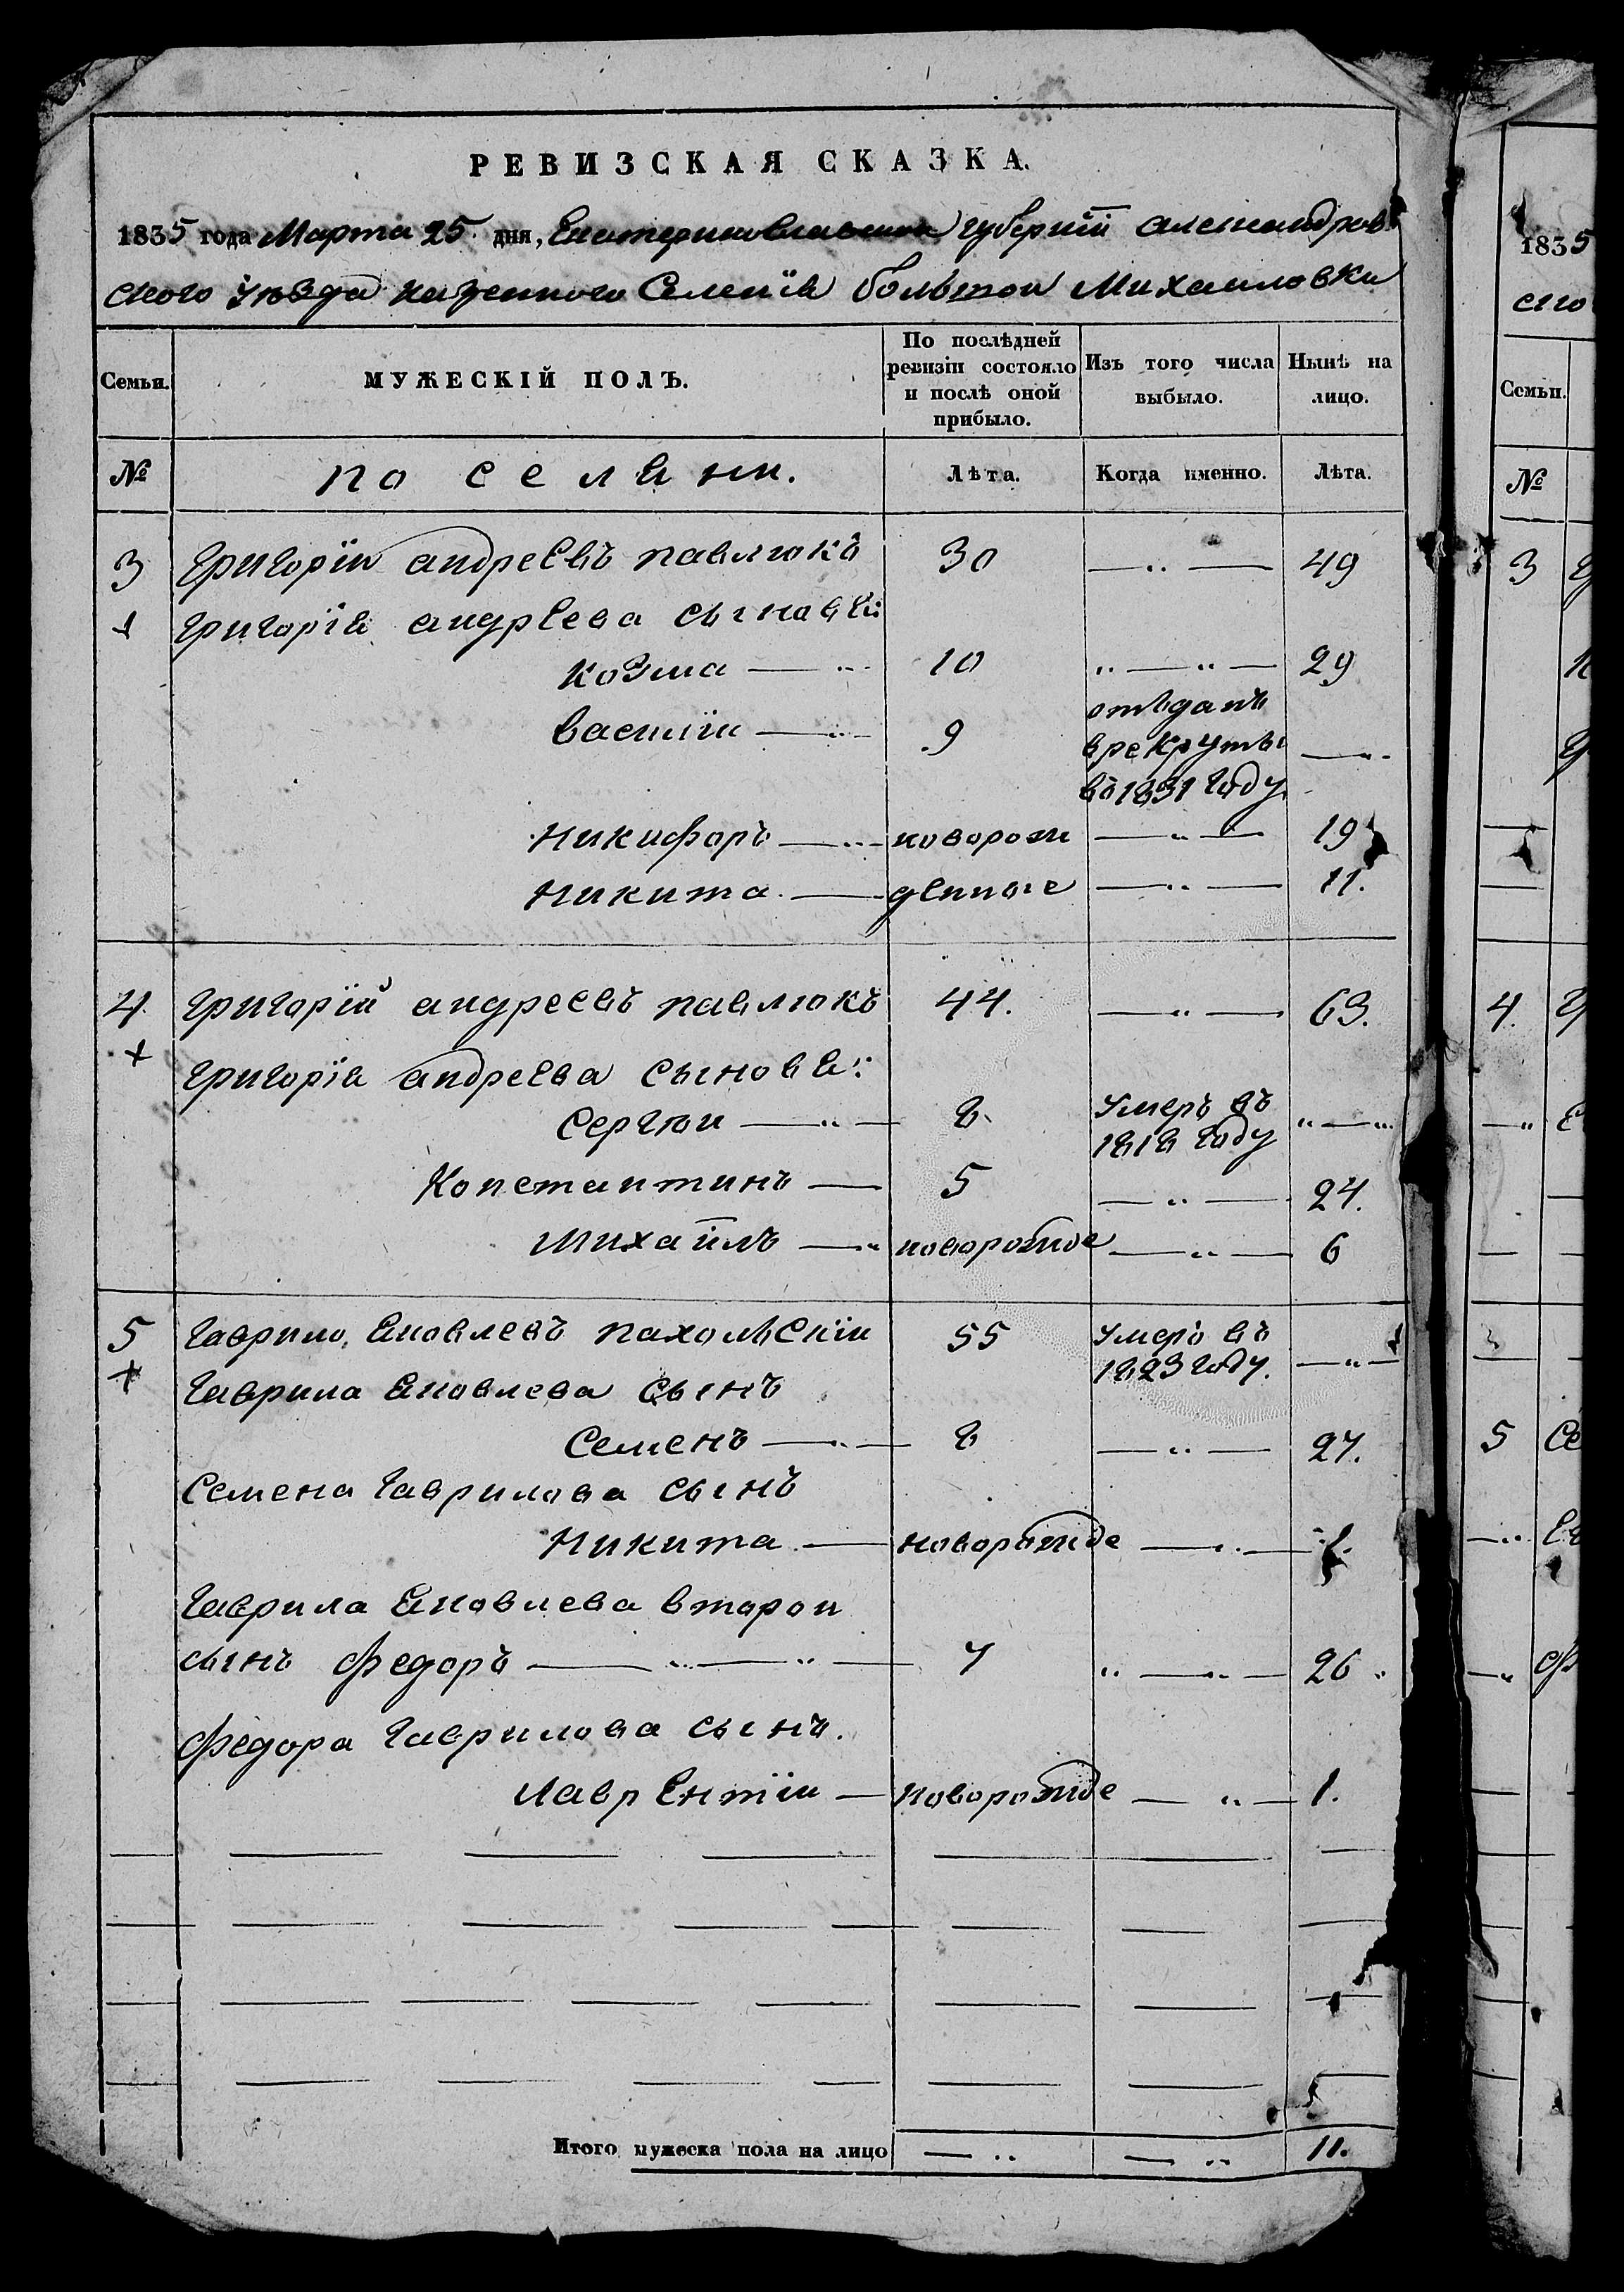 РЕВИЗСКАЯ СКАЗКА.
1835 года Марта 25 дня, Екатеринославской губернїи Александров
ского Уѣзда казенного Селенїя большой Михаиловки
Семьи.
МУЖЕСКІЙ ПОЛЪ.
По послѣдней ревизіи состояло и послѣ оной прибыло.
Изъ того числа выбыло.
Нынѣ на лицо.
№ поселяни. Лѣта. Когда именно. Лѣта.
3 Григорїи андреевъ павлюкъ 30 —„— 49
Григорїя андреева сыновья:
козма —„ 10 „—„— 29
василїи —„— 9 отъданъ врекруты въ 1831 году —„
Никифоръ —„ новорож —„— 19
Никита — денные —„— 11.
4. Григорїй андреевъ павлюкъ 44. —„— 63.
+
Григорїя андреева сыновья:
Сергюи —„— 8 Умеръ въ 1818 году „—„
Константинъ — 5 —„— 24.
Михаїлъ —„ новорожде —„— 6
5 Гаврило Яковлевъ пахольскїи 55 Умеръ въ 1823 году. —„—
+
Гаврила Яковлева сынъ
Семенъ —„— 8 —„— 27.
Семена Гаврилова сынъ
Никита — новорожде —„— 1.
Гаврила Яковлева второи
сынъ Федоръ —„—„— 7 „—„— 26
Федора Гаврилова сынъ.
Лаврентїи — новорожде —„— 1.
Итого мужеска пола на лицо —„ —„ 11.
1835
ско
Семьи.
№
3
4.
5 Се